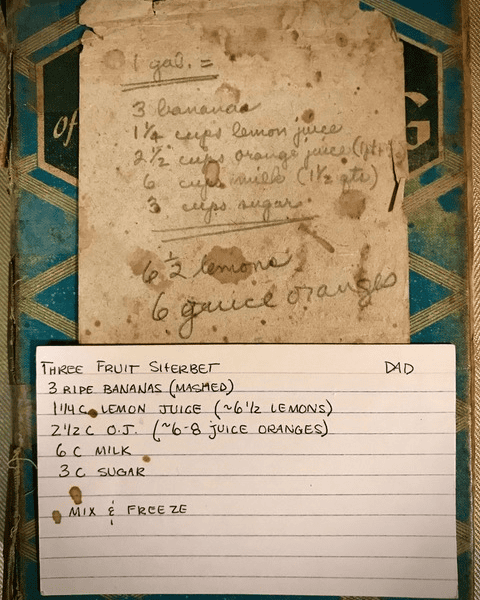 of
G
1 gal. =
3 bananas
1¼ cups lemon juice
2½ cups orange juice (1pt+)
6 cups milk (1½ qts)
3 cups sugar
6½ lemons
6 juice oranges
THREE FRUIT SHERBET DAD
3 RIPE BANANAS (MASHED)
1 1/4 C LEMON JUICE (~6 1/2 LEMONS)
2 1/2 C O.J. (~6-8 JUICE ORANGES)
6 C MILK
3 C SUGAR
MIX & FREEZE